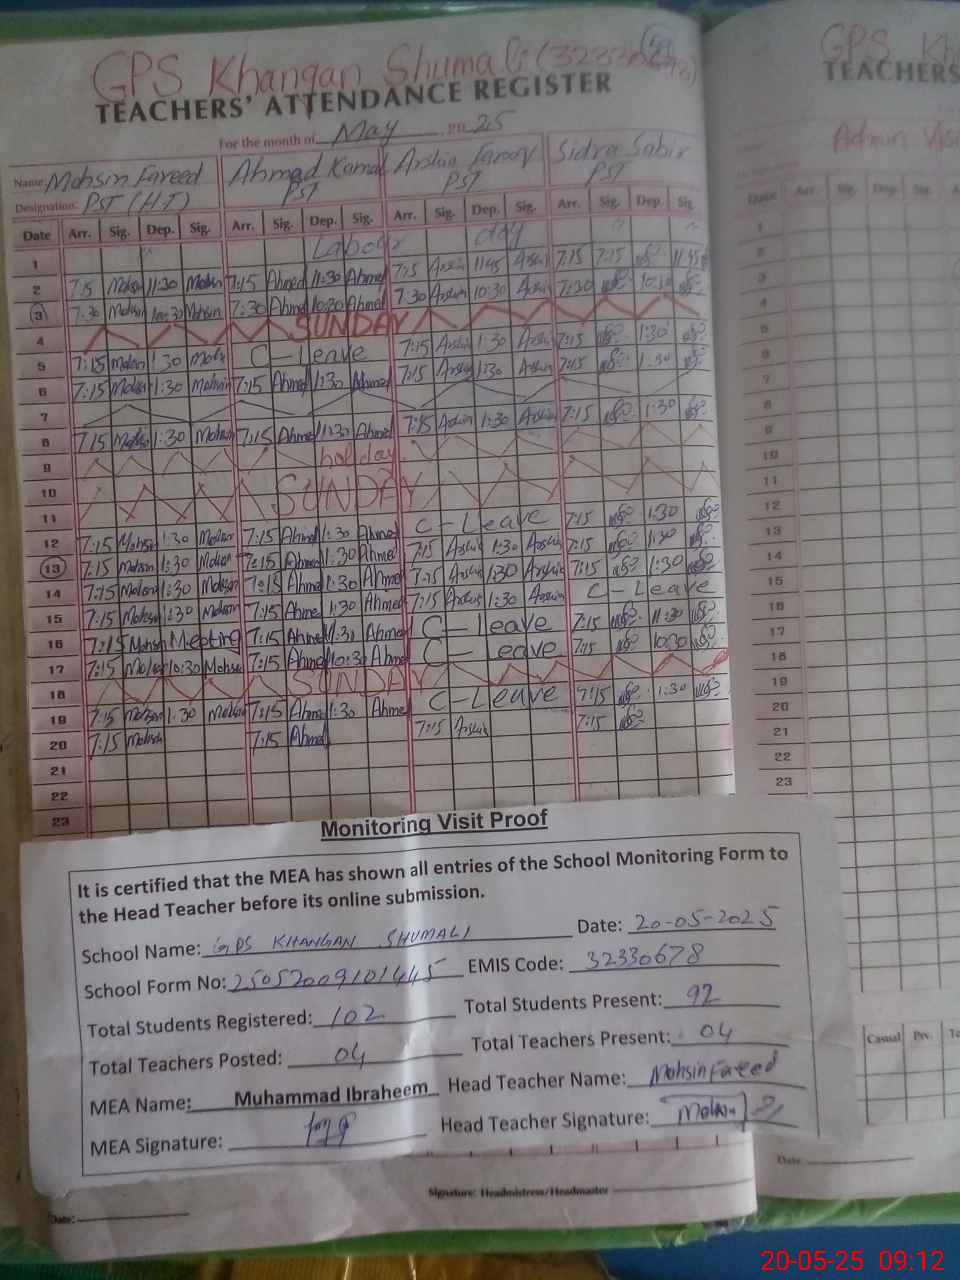 GPS Khangan Shumali (32330678)
TEACHERS' ATTENDANCE REGISTER
For the month of May 2025
Name: Mohsin Fareed Ahmad Kamal Arshia Farooq Sidra Sabir
Designation: PST (H.T) PST PST PST
Date Arr. Sig. Dep. Sig. Arr. Sig. Dep. Sig. Arr. Sig. Dep. Sig. Arr. Sig. Dep. Sig.
1 Labour day
2 7:15 Mohsin 11:30 Mohsin 7:15 Ahmed 11:30 Ahmed 7:15 Arshia 11:45 Arshia 7:15 7:15 11:45
3 7:30 Mohsin 10:30 Mohsin 7:30 Ahmed 10:30 Ahmed 7:30 Arshia 10:30 Arshia 7:30 10:30
4 SUNDAY
5 7:15 Mohsin 1:30 Mohsin C-Leave 7:15 Arshia 1:30 Arshia 7:15 1:30
6 7:15 Mohsin 1:30 Mohsin 7:15 Ahmed 1:30 Ahmed 7:15 Arshia 1:30 Arshia 7:15 1:30
7
8 7:15 Mohsin 1:30 Mohsin 7:15 Ahmed 1:30 Ahmed 7:15 Arshia 1:30 Arshia 7:15 1:30
9 holiday
10
11 SUNDAY
12 7:15 Mohsin 1:30 Mohsin 7:15 Ahmed 1:30 Ahmed C-Leave 7:15 1:30
13 7:15 Mohsin 1:30 Mohsin 7:15 Ahmed 1:30 Ahmed 7:15 Arshia 1:30 Arshia 7:15 1:30
14 7:15 Mohsin 1:30 Mohsin 7:15 Ahmed 1:30 Ahmed 7:15 Arshia 1:30 Arshia 7:15 1:30
15 7:15 Mohsin 1:30 Mohsin 7:15 Ahmed 1:30 Ahmed 7:15 Arshia 1:30 Arshia C-Leave
16 7:15 Mohsin Meeting 7:15 Ahmed 11:31 Ahmed C-Leave 7:15 11:30
17 7:15 Mohsin 10:30 Mohsin 7:15 Ahmed 10:30 Ahmed C-Leave 7:15 10:30
18 SUNDAY
19 7:15 Mohsin 1:30 Mohsin 7:15 Ahmed 1:30 Ahmed C-Leave 7:15 1:30
20 7:15 Mohsin 7:15 Ahmed 7:15 Arshia 7:15
21
22
23
Monitoring Visit Proof
It is certified that the MEA has shown all entries of the School Monitoring Form to
the Head Teacher before its online submission.
School Name: GPS KHANGAN SHUMALI Date: 20-05-2025
School Form No: 25052009101445 EMIS Code: 32330678
Total Students Registered: 102 Total Students Present: 92
Total Teachers Posted: 04 Total Teachers Present: 04
MEA Name: Muhammad Ibraheem Head Teacher Name: Mohsin Fareed
MEA Signature: Head Teacher Signature: Mohsin
Signature: Headmistress/Headmaster
Date:
GPS Kha
TEACHERS
Admin Vis
Date Arr. Sig. Dep. Sig. A
1
2
3
4
5
6
7
8
9
10
11
12
13
14
15
16
17
18
19
20
21
22
23
Casual Prv. To
Date
20-05-25 09:12